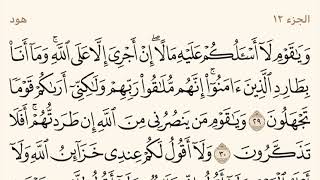 الجزء ١٢
هود
وَيَٰقَوْمِ لَآ أَسْـَٔلُكُمْ عَلَيْهِ مَالًا ۖ إِنْ أَجْرِىَ إِلَّا عَلَى ٱللَّهِ ۚ وَمَآ أَنَا۠
بِطَارِدِ ٱلَّذِينَ ءَامَنُوٓا۟ ۚ إِنَّهُم مُّلَٰقُوا۟ رَبِّهِمْ وَلَٰكِنِّىٓ أَرَىٰكُمْ قَوْمًا
تَجْهَلُونَ ٢٩ وَيَٰقَوْمِ مَن يَنصُرُنِى مِنَ ٱللَّهِ إِن طَرَدتُّهُمْ ۚ أَفَلَا
تَذَكَّرُونَ ٣٠ وَلَآ أَقُولُ لَكُمْ عِندِى خَزَآئِنُ ٱللَّهِ وَلَآ